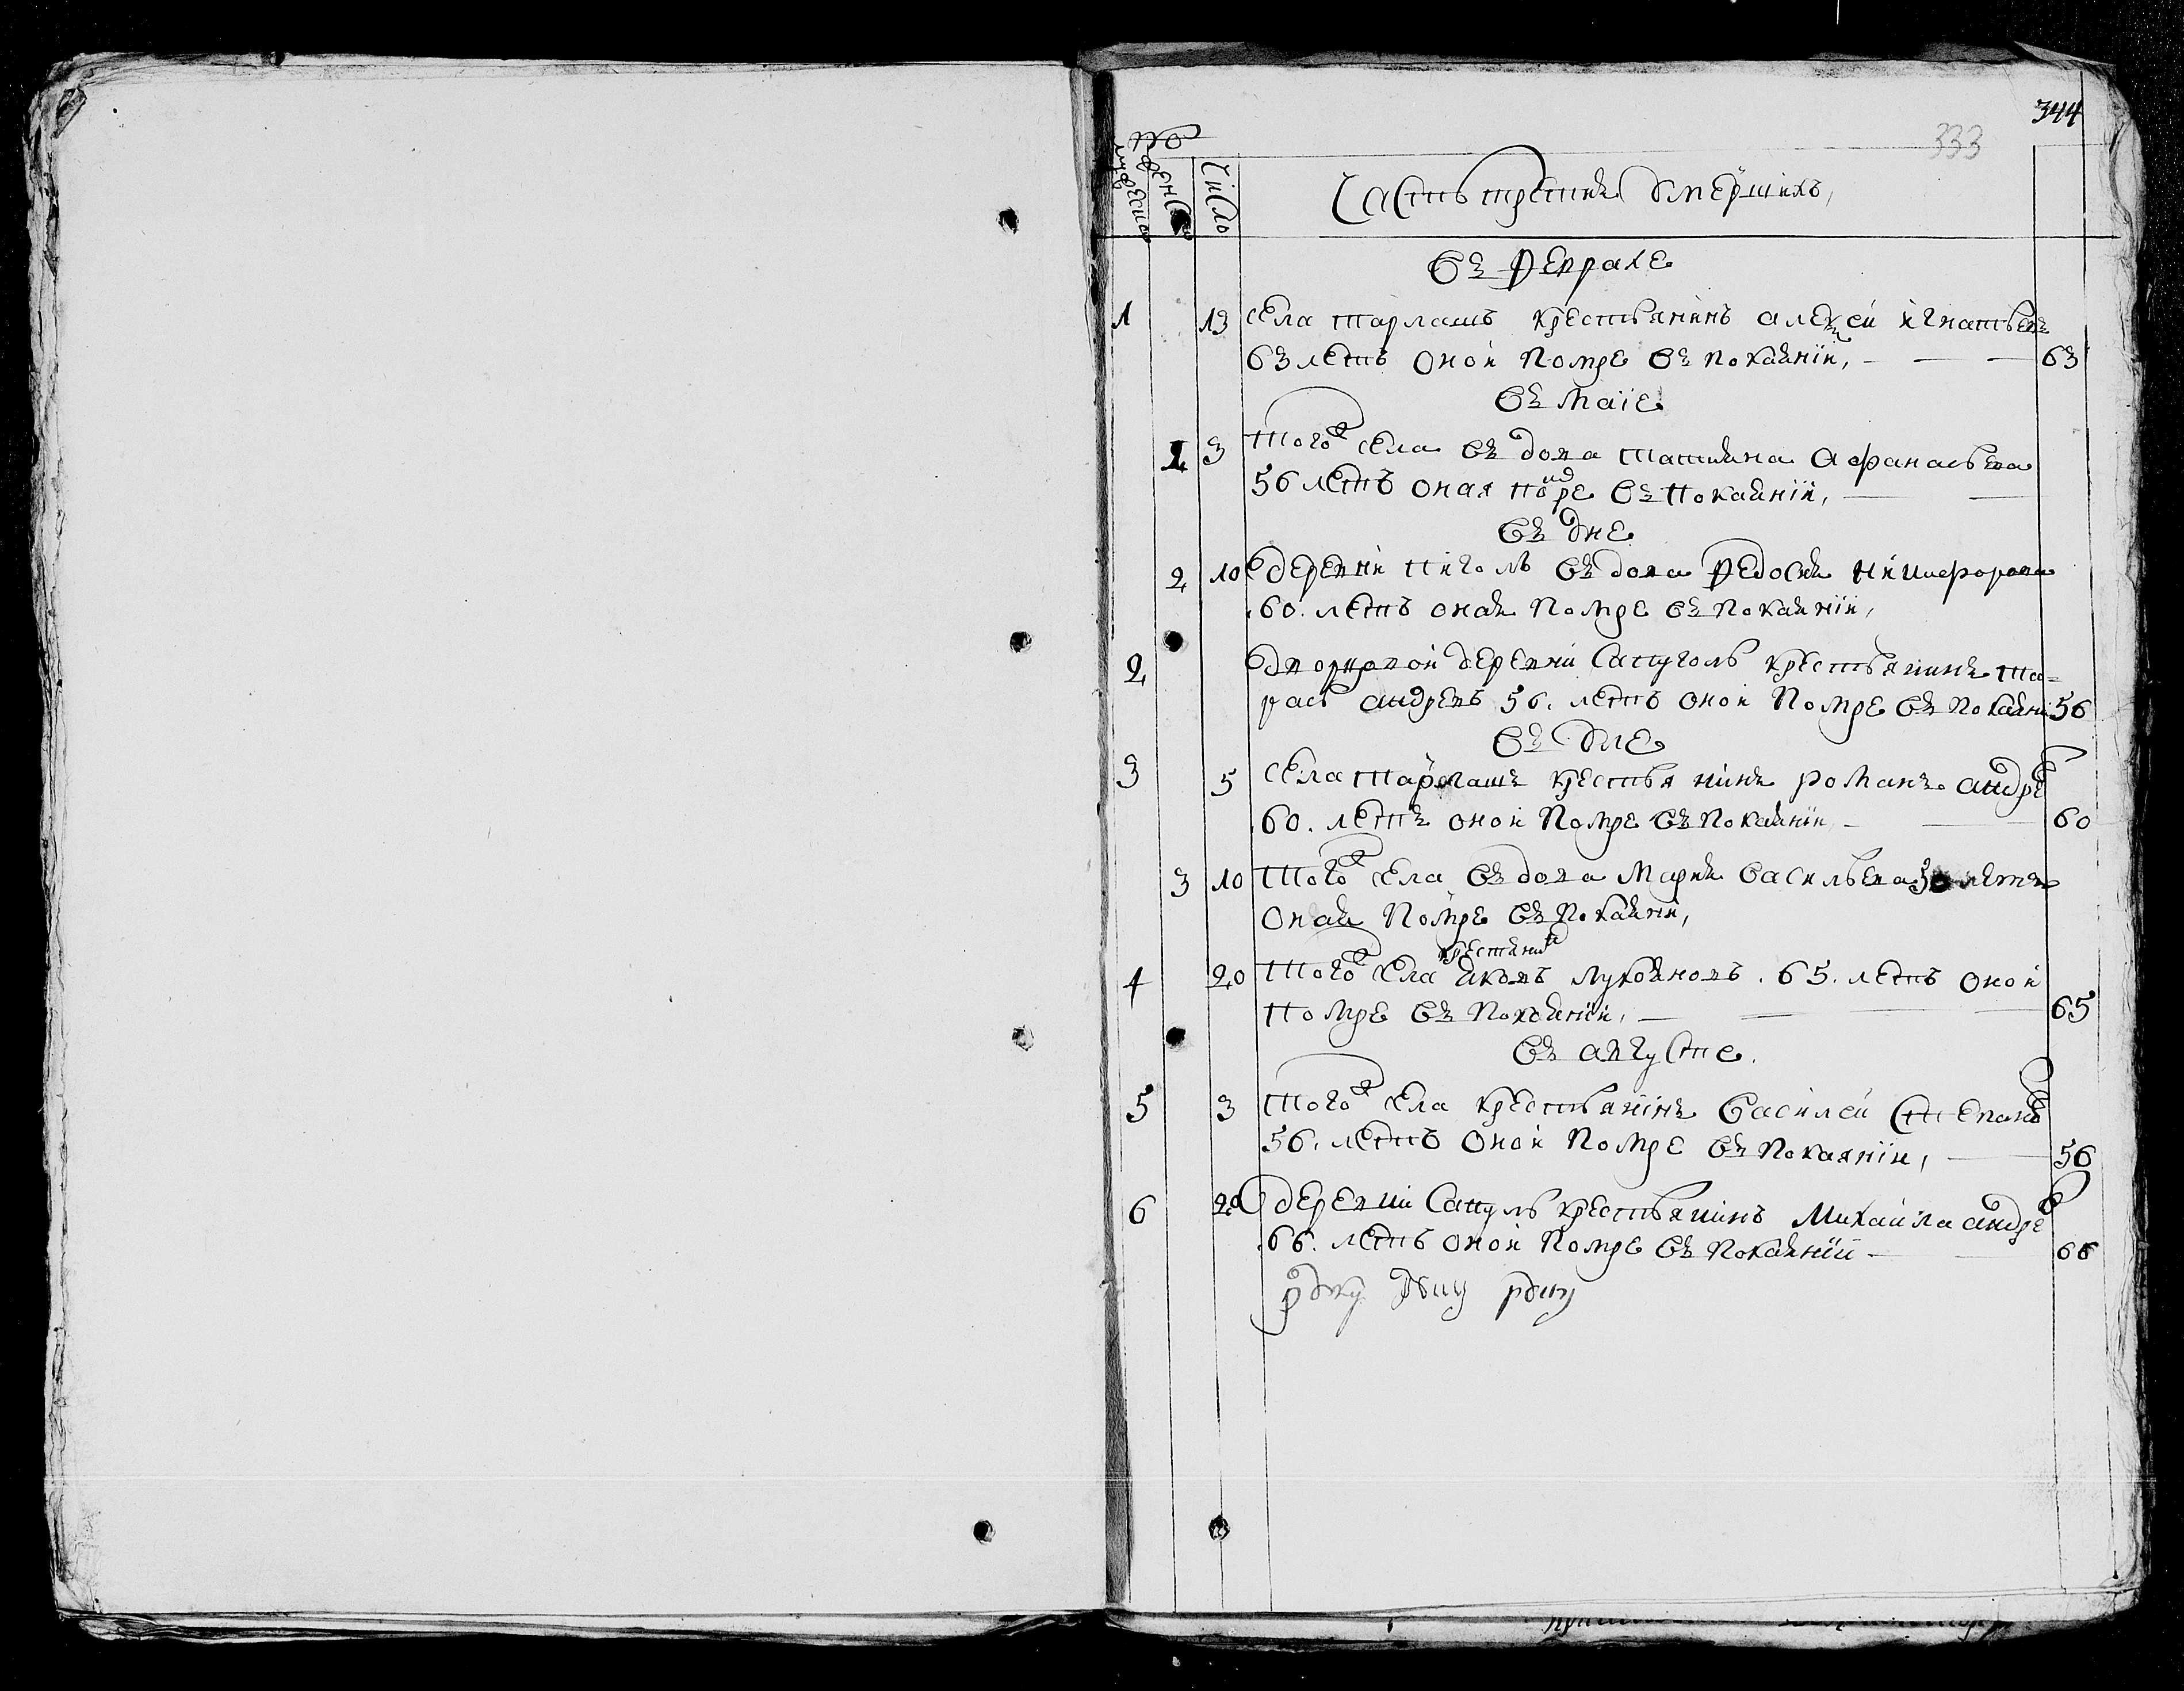 344
333
№
мужеска
женска
число
Часть третия умершихъ,
въ феврале
1 13 села тарлашъ крестьянинъ алеѯеи игнатьевъ
63 летъ оной помре въ покаянiи, 63
въ маiе
1 3 того ж села въдова татияна афанасьева
56 летъ оная помре въ покаянiи,
въ юне
2 10 деревни въдова федосия никифорова
60. летъ оная помре въ покаянiи,
2 деревни крестьянинъ та=
расъ андревъ 56. летъ оной помре въ покаянi 56
въ юле
3 5 села тарлашъ крестьянинъ романъ андре в
60. летъ оной помре въ покаянiи 60
3 10 того ж села въдова мария васильева 50 летъ
оная помре въ покаянiи,
крестянин
4 20 того ж села яковъ лукояновъ. 65. летъ оной
помре въ покаянiи, 65
въ августе.
5 3 того ж села крестьянинъ василеи степанов
56. летъ оной помре въ покаянiи, 56
6 20 деревни крестьянинъ михаила андре в
66. летъ оной помре въ покаянiи 66